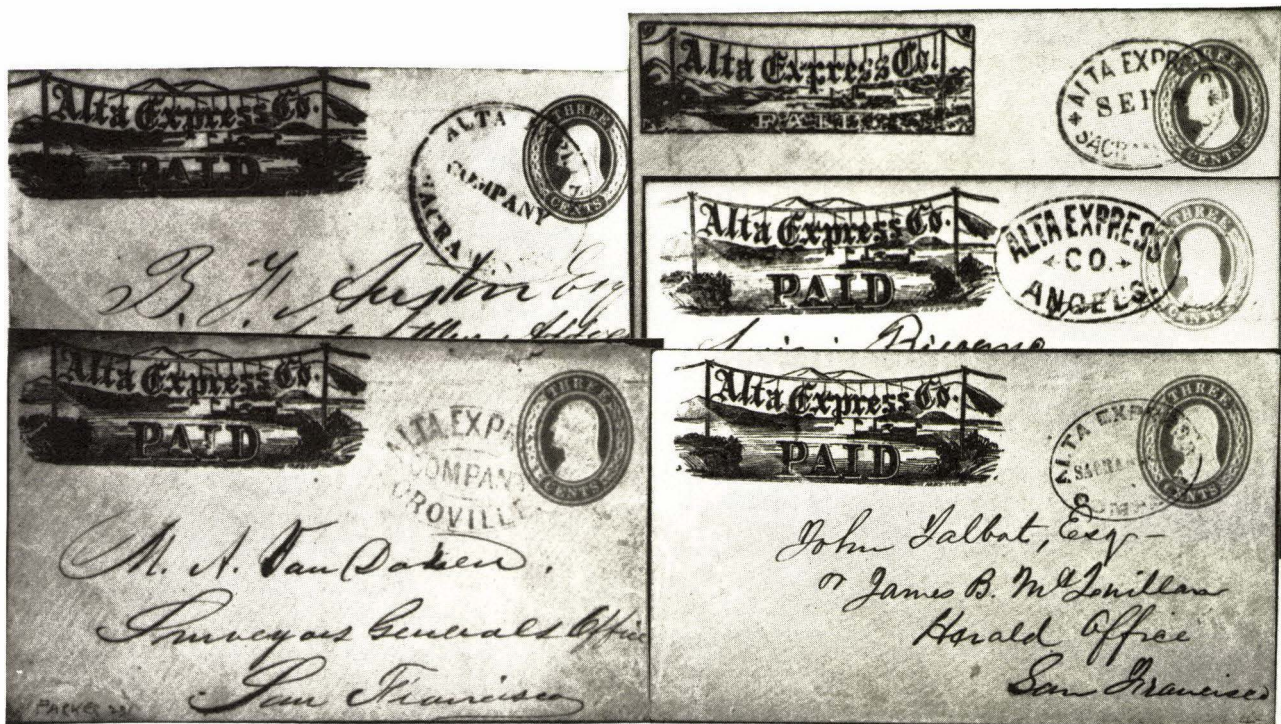 Alta Express Co.
PAID
ALTA
COMPANY
SACRA
THREE
7
CENTS
B. F. Austin Esq
Alta Express Co.
PAID
ALTA EXPRE
SEP
SACRA
THREE
CENTS
Alta Express Co.
PAID
ALTA EXPRESS
CO.
ANGELS.
THREE
CENTS
Alta Express Co.
PAID
ALTA EXPR
COMPANY
OROVILLE
THREE
CENTS
M. A. Van Doken.
Surveyors Generals Office
San Francisco
PARKER
Alta Express Co.
PAID
ALTA EXPR
SACRA
THREE
CENTS
John Talbot, Esq -
or James B. McQuillan
Herald Office
San Francisco